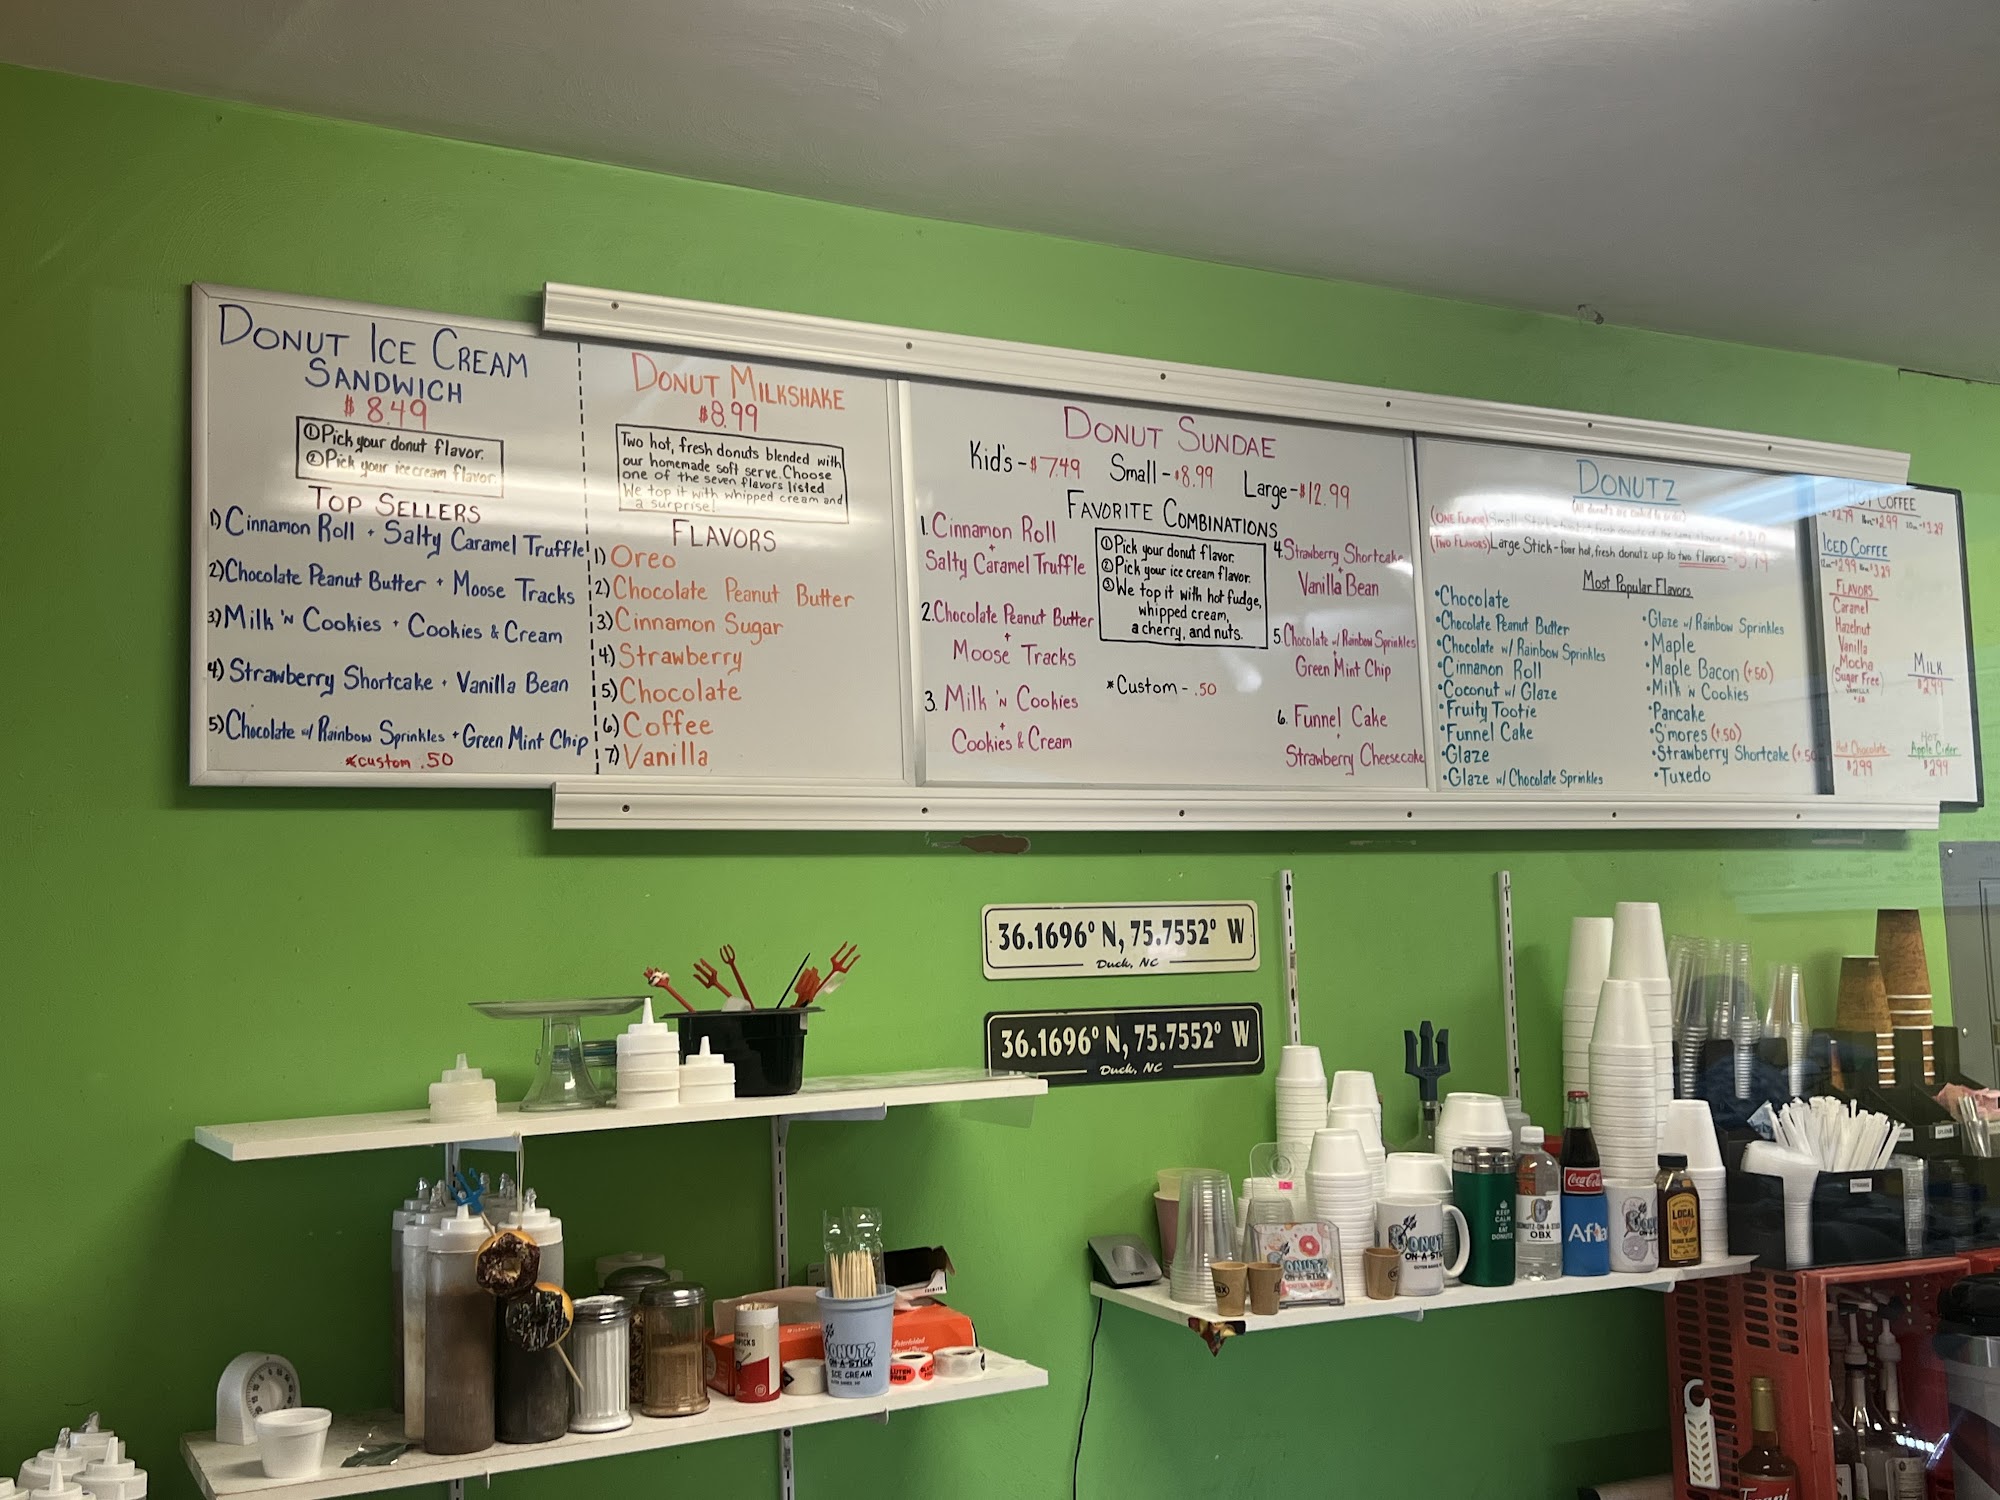 DONUT ICE CREAM
SANDWICH
$8.49
①Pick your donut flavor.
②Pick your ice cream flavor.
TOP SELLERS
1) Cinnamon Roll + Salty Caramel Truffle
2) Chocolate Peanut Butter + Moose Tracks
3) Milk 'N Cookies + Cookies & Cream
4) Strawberry Shortcake + Vanilla Bean
5) Chocolate w/ Rainbow Sprinkles + Green Mint Chip
*custom .50
DONUT MILKSHAKE
$8.99
Two hot, fresh donuts blended with
our homemade soft serve. Choose
one of the seven flavors listed
We top it with whipped cream and
a surprise!
FLAVORS
1) Oreo
2) Chocolate Peanut Butter
3) Cinnamon Sugar
4) Strawberry
5) Chocolate
6) Coffee
7) Vanilla
DONUT SUNDAE
Kid's - $7.49 Small - $8.99 Large - $12.99
FAVORITE COMBINATIONS
1. Cinnamon Roll
+
Salty Caramel Truffle
2. Chocolate Peanut Butter
+
Moose Tracks
3. Milk 'N Cookies
+
Cookies & Cream
①Pick your donut flavor.
②Pick your ice cream flavor.
③We top it with hot fudge,
whipped cream,
a cherry, and nuts.
*Custom - .50
4. Strawberry Shortcake
+
Vanilla Bean
5. Chocolate w/ Rainbow Sprinkles
+
Green Mint Chip
6. Funnel Cake
+
Strawberry Cheesecake
DONUTZ
(All donuts are cooked to order)
(ONE FLAVOR) Small Stick
(TWO FLAVORS) Large Stick - four hot, fresh donutz up to two flavors -
Most Popular Flavors
•Chocolate
•Chocolate Peanut Butter
•Chocolate w/ Rainbow Sprinkles
•Cinnamon Roll
•Coconut w/ Glaze
•Fruity Tootie
•Funnel Cake
•Glaze
•Glaze w/ Chocolate Sprinkles
•Glaze w/ Rainbow Sprinkles
•Maple
•Maple Bacon (+.50)
•Milk 'N Cookies
•Pancake
•S'mores (+.50)
•Strawberry Shortcake (+.50
•Tuxedo
HOT COFFEE
$2.99 $3.29
ICED COFFEE
$2.99 $3.29
FLAVORS
Caramel
Hazelnut
Vanilla
Mocha
(Sugar Free)
MILK
$2.99
Hot Chocolate
$2.99
HOT
Apple Cider
$2.99
36.1696° N, 75.7552° W
Duck, NC
36.1696° N, 75.7552° W
Duck, NC
DONUTZ
ON-A-STICK
ICE CREAM
GLUTEN
FREE
DONUTZ
ON-A-STICK
DONUTZ
ON-A-STICK
KEEP
CALM
EAT
DONUTZ
DONUTZ-ON-A-STICK
OBX
Coca-Cola
Aflac
LOCAL
OBX